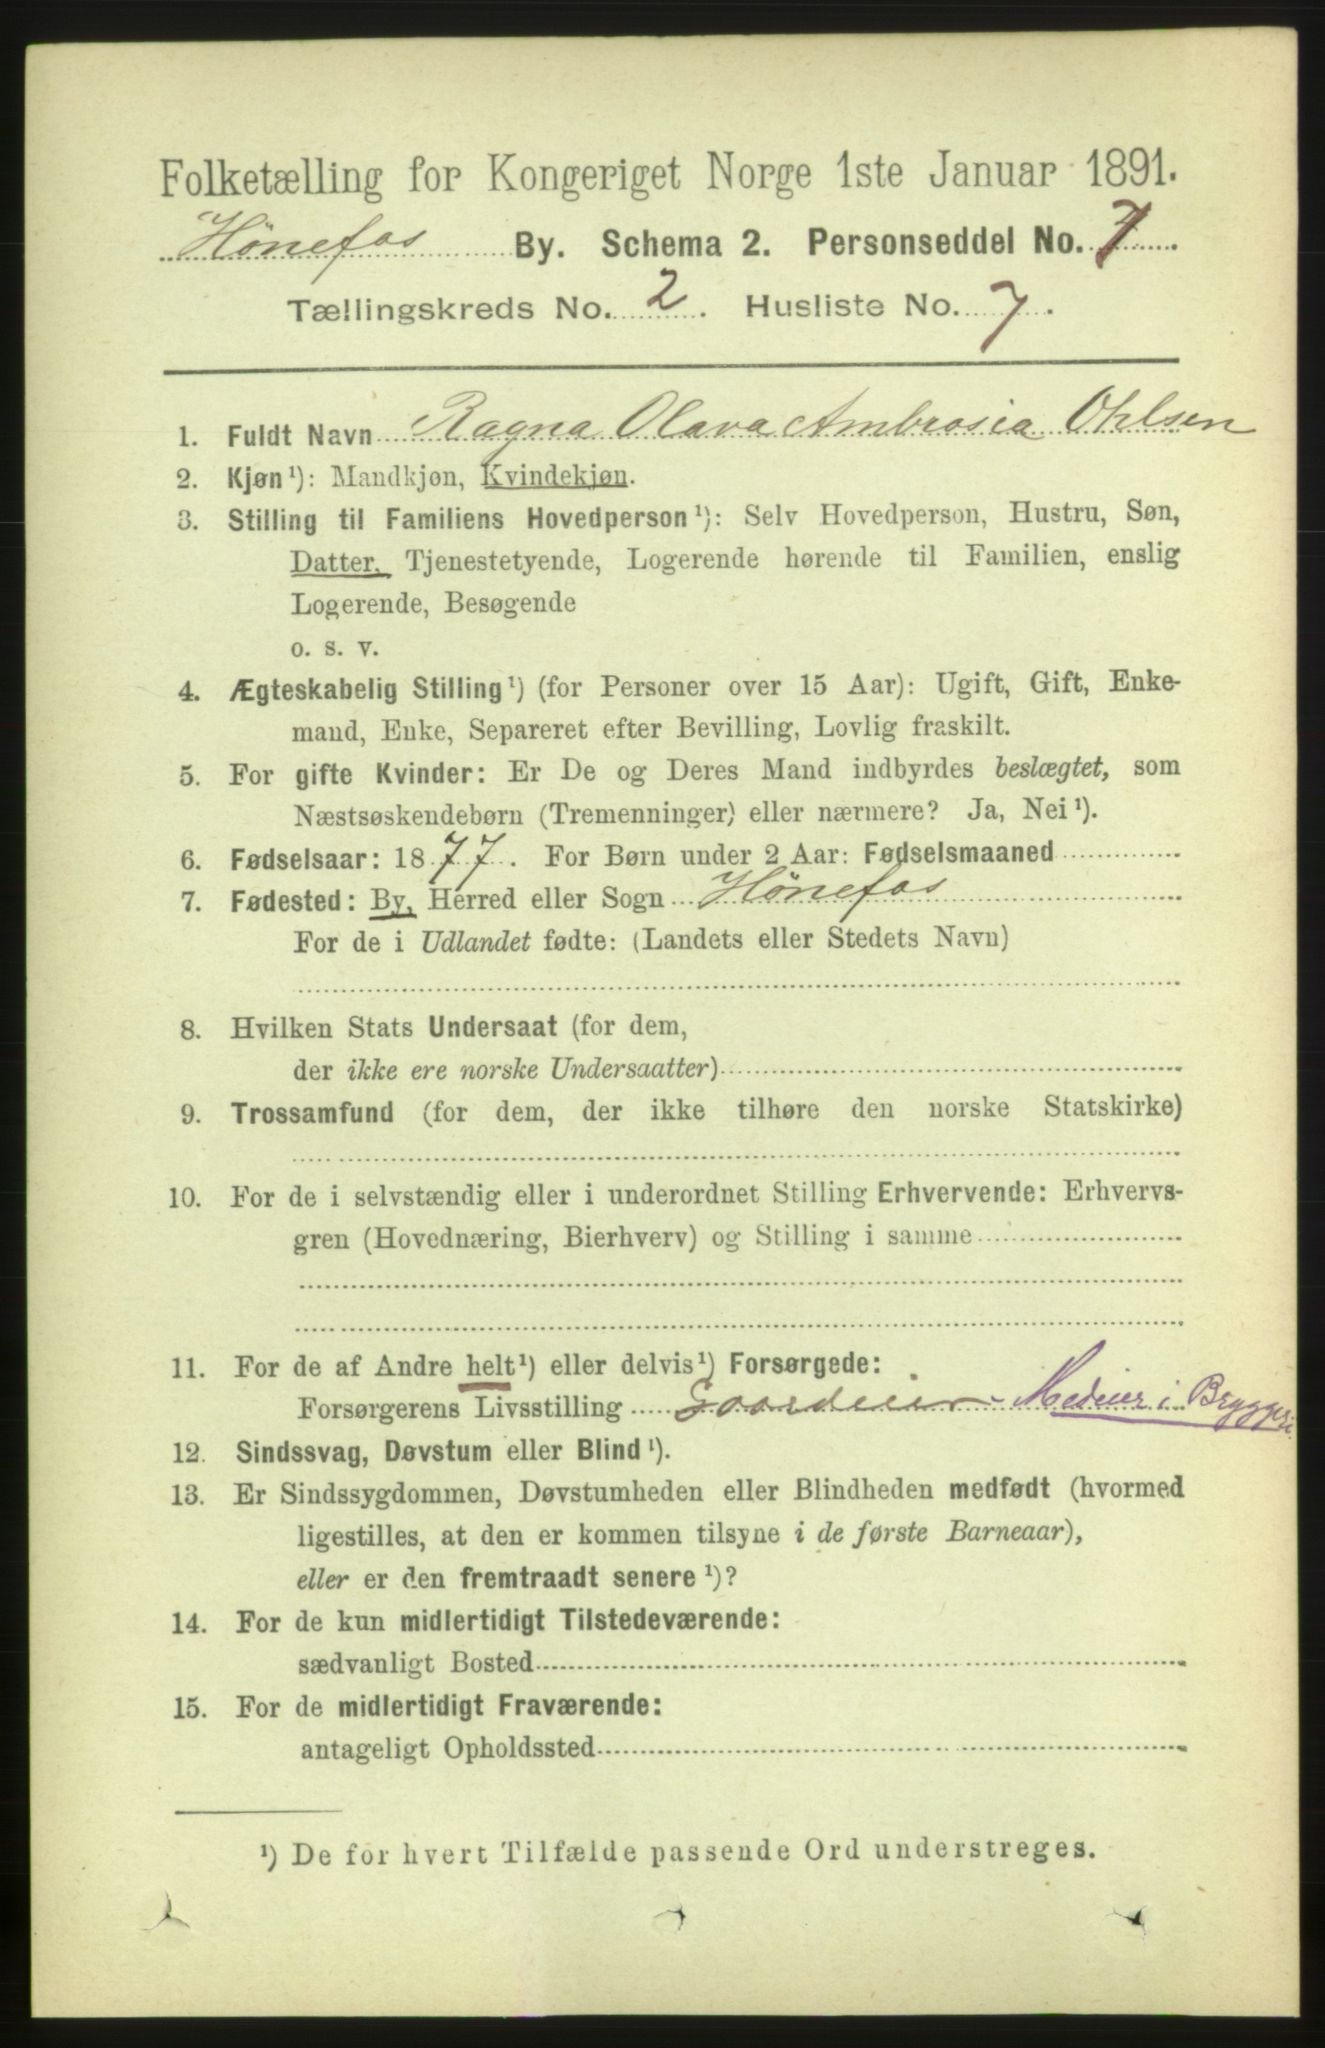 Folketælling for Kongeriget Norge 1ste Januar 1891.
Hönefos By. Schema 2. Personseddel No. 7
Tællingskreds No. 2. Husliste No. 7.
1. Fuldt Navn Ragna Olava Ambrosia Ohlsen
2. Kjøn¹): Mandkjøn, Kvindekjøn.
3. Stilling til Familiens Hovedperson¹): Selv Hovedperson, Hustru, Søn,
Datter, Tjenestetyende, Logerende hørende til Familien, enslig
Logerende, Besøgende
o. s. v.
4. Ægteskabelig Stilling¹) (for Personer over 15 Aar): Ugift, Gift, Enke-
mand, Enke, Separeret efter Bevilling, Lovlig fraskilt.
5. For gifte Kvinder: Er De og Deres Mand indbyrdes beslægtet, som
Næstsøskendebørn (Tremenninger) eller nærmere? Ja, Nei¹).
6. Fødselsaar: 1877. For Børn under 2 Aar: Fødselsmaaned
7. Fødested: By, Herred eller Sogn Hönefos
For de i Udlandet fødte: (Landets eller Stedets Navn)
8. Hvilken Stats Undersaat (for dem,
der ikke ere norske Undersaatter)
9. Trossamfund (for dem, der ikke tilhøre den norske Statskirke)
10. For de i selvstændig eller i underordnet Stilling Erhvervende: Erhvervs-
gren (Hovednæring, Bierhverv) og Stilling i samme
11. For de af Andre helt¹) eller delvis¹) Forsørgede:
Forsørgerens Livsstilling Gaardeier - Medeier i Bryggeri.
12. Sindssvag, Døvstum eller Blind¹).
13. Er Sindssygdommen, Døvstumheden eller Blindheden medfødt (hvormed
ligestilles, at den er kommen tilsyne i de første Barneaar),
eller er den fremtraadt senere¹)?
14. For de kun midlertidigt Tilstedeværende:
sædvanligt Bosted
15. For de midlertidigt Fraværende:
antageligt Opholdssted
¹) De for hvert Tilfælde passende Ord understreges.